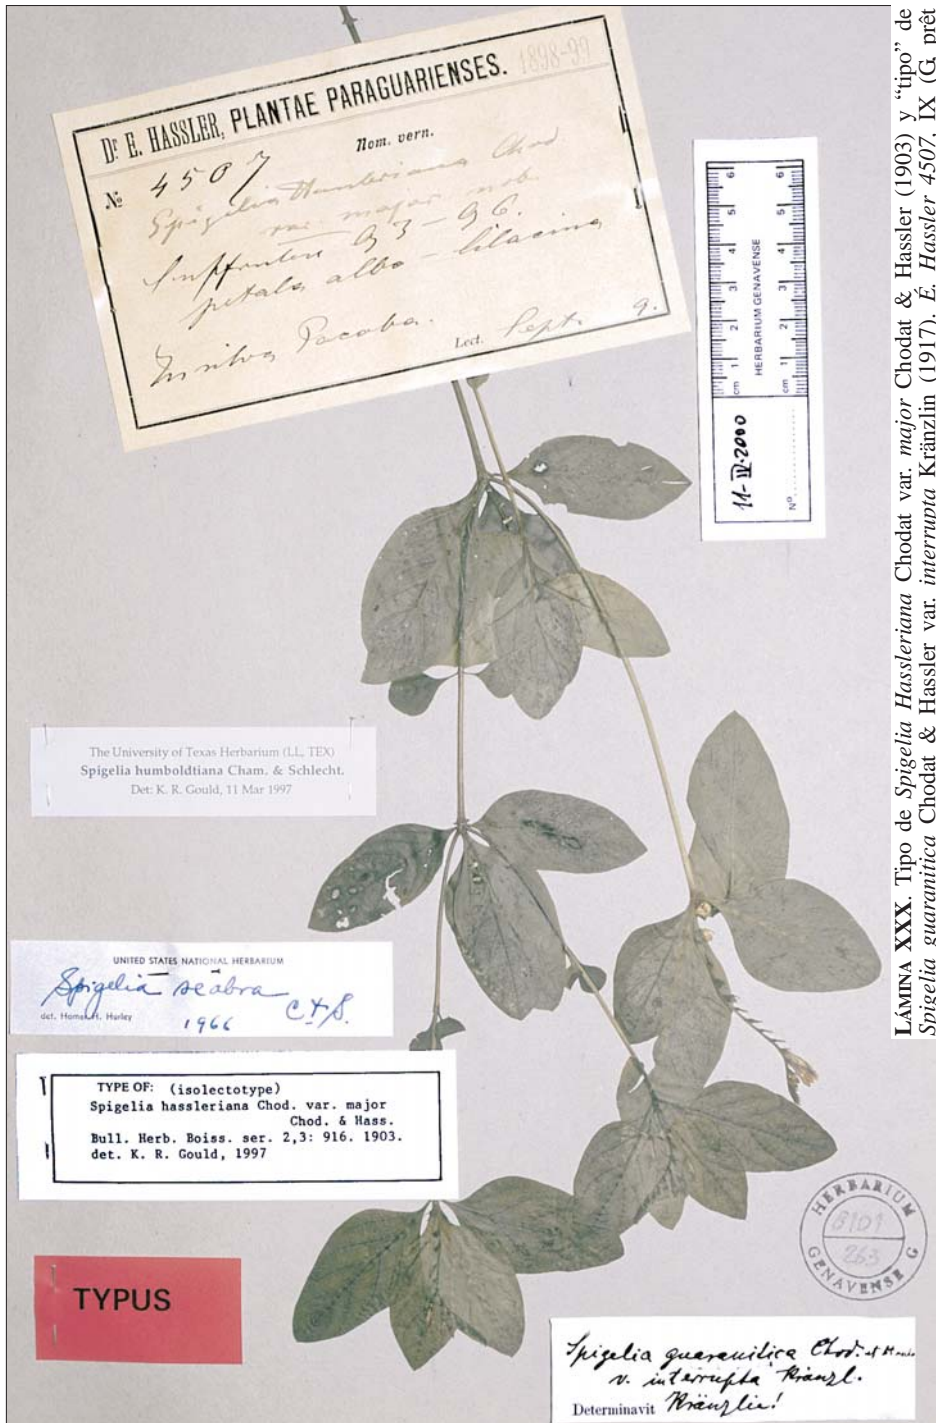 Dr E. HASSLER, PLANTAE PARAGUARIENSES. 1898-99
Nom. vern.
№ 4507
Spigelia Hassleriana Chod
var major nob.
Suffrutex 0,3 – 0,6.
petala albo – lilacina
In silva Pacoba.
Lect. Sept. 9.
cm 1 2 3 4 5 6
HERBARIUM GENAVENSE
cm 1 2 3 4 5 6
11-IV-2000
N°
The University of Texas Herbarium (LL, TEX)
Spigelia humboldtiana Cham. & Schlecht.
Det: K. R. Gould, 11 Mar 1997
UNITED STATES NATIONAL HERBARIUM
Spigelia scabra
C & S.
det. H. Hurley 1966
TYPE OF: (isolectotype)
Spigelia hassleriana Chod. var. major
Chod. & Hass.
Bull. Herb. Boiss. ser. 2,3: 916. 1903.
det. K. R. Gould, 1997
TYPUS
HERBARIUM
GENAVENSE G
8101
263
Spigelia guaranitica Chod. et
v. interrupta Kränzl.
Determinavit Kränzlin!
LÁMINA XXX. Tipo de Spigelia Hassleriana Chodat var. major Chodat & Hassler (1903) y “tipo” de
Spigelia guaranitica Chodat & Hassler var. interrupta Kränzlin (1917). É. Hassler 4507, IX (G, prêt